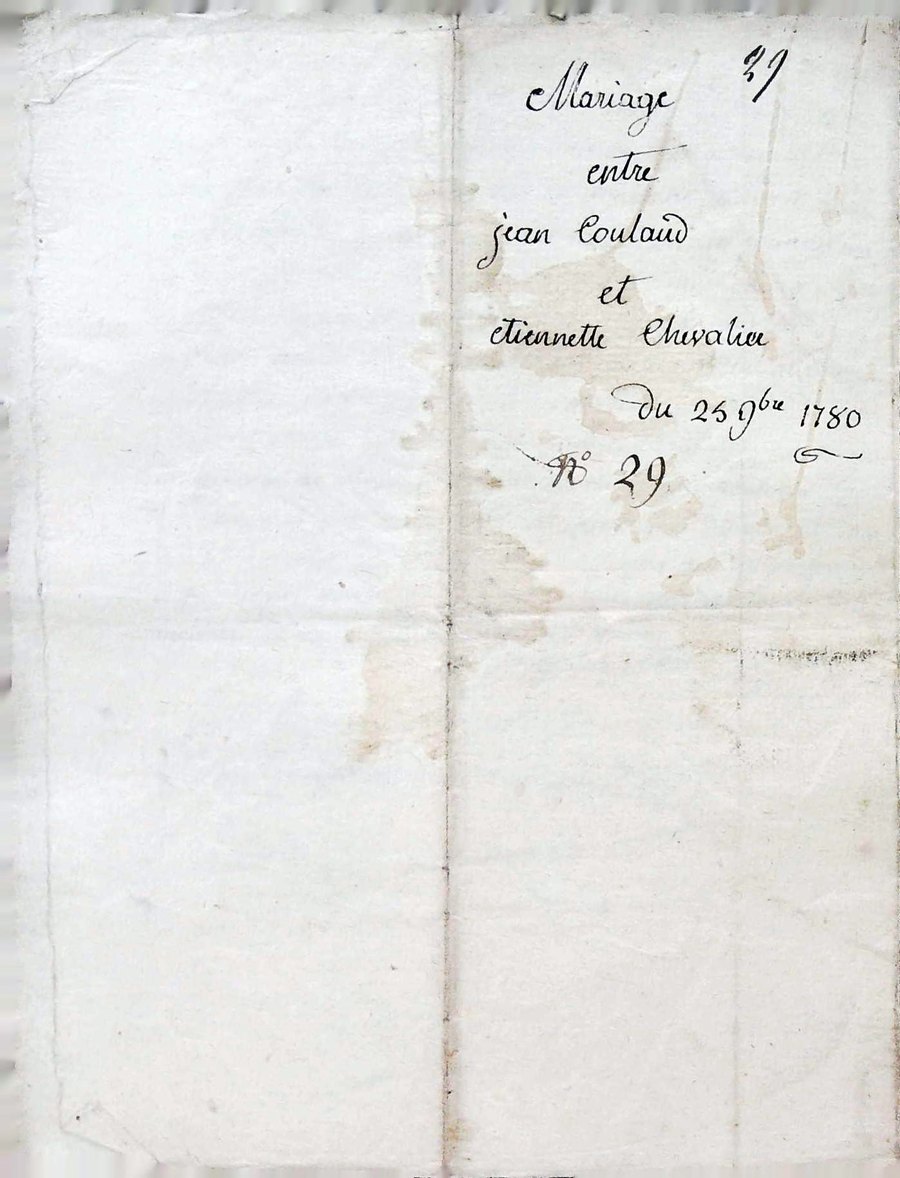 29
Mariage
entre
jean Coulaud
et
etiennette Chevalier
du 25 9bre 1780
N° 29